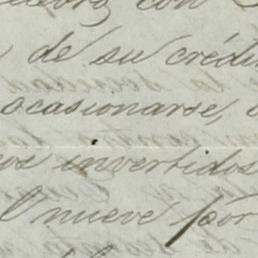 con
de su crédi
ocasionarse,
os invertidos
l nueve por